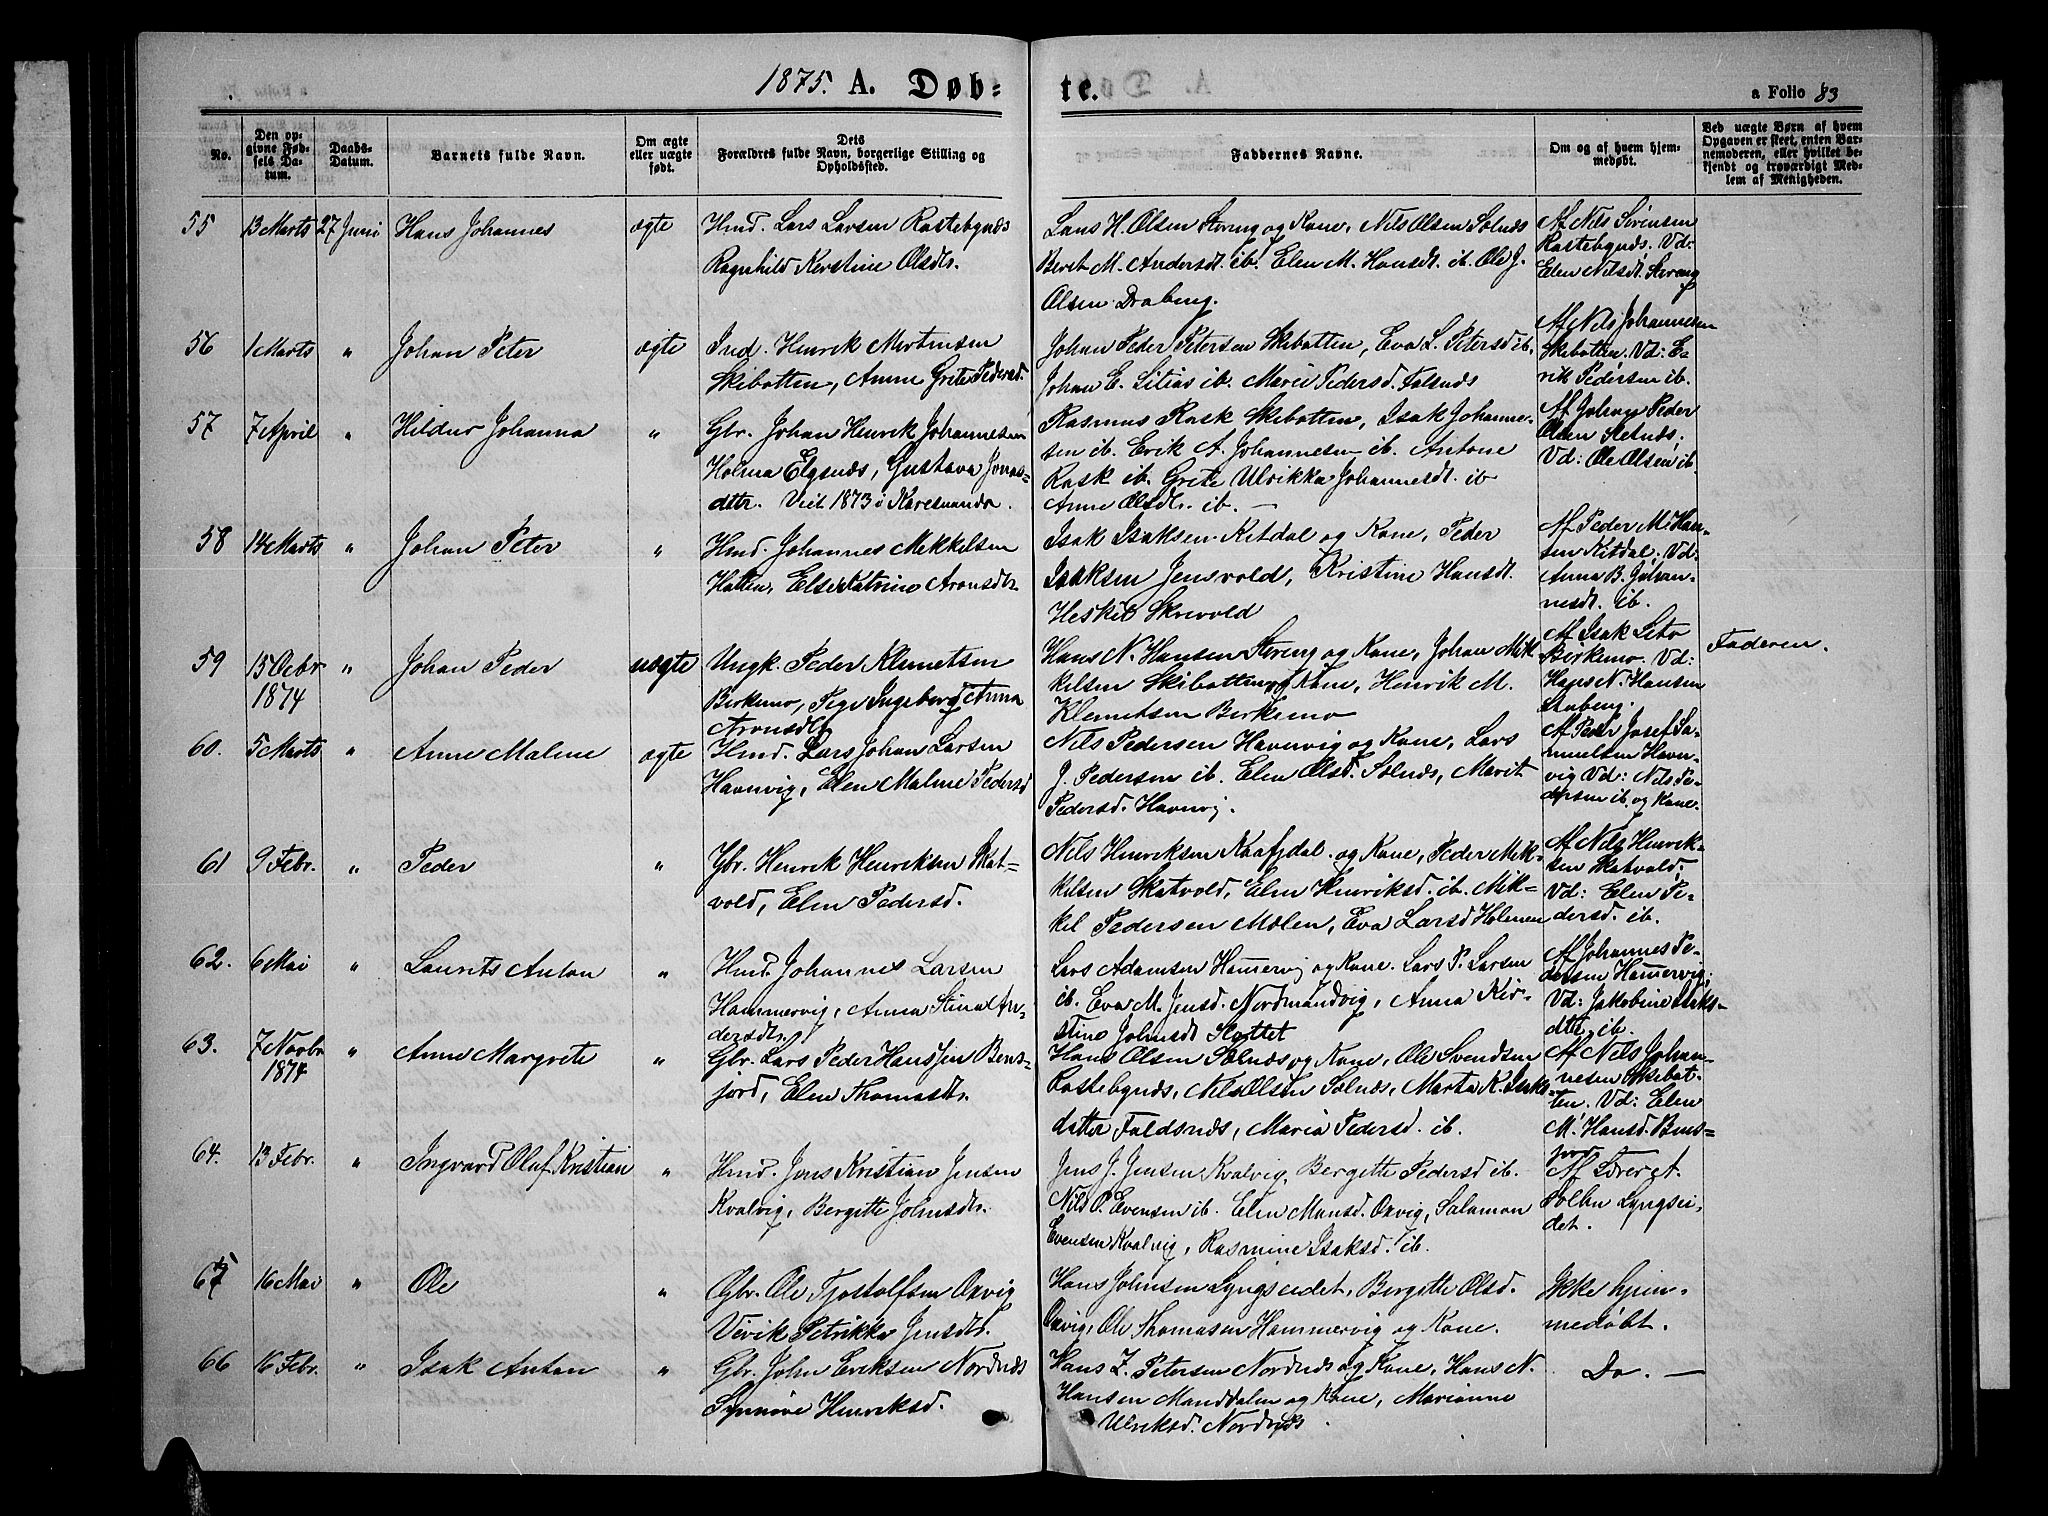 1875. A. Døbte.
a Folio 83
No.
Den opgivne Fødsels Datum.
Daabs-Datum.
Barnets fulde Navn.
Om ægte eller uægte født.
Dets Forældres fulde Navn, borgerlige Stilling og Opholdssted.
Faddernes Navne.
Om og af hvem hjemmedøbt.
Ved uægte Børn af hvem Opgaven er skeet, enten Barnemoderen, eller hvilket bekjendt og troværdigt Medlem af Menigheden.
55 13 Marts 27 Juni Hans Johannes ægte
Hmd. Lars Larsen Rastebynds
Ragnhild Kerstine Olsdtr.
Lars H. Olsen Steeng og Kone, Nils Olsen Solnds
Beret M. Andersdt. ib. Elen M. Hansdt. ib. Ole J.
Olsen
Af Nils Sørensen
Rastebynds. Vd:
Elen Nilsdt.
56 1 Marts " Johan Peter ægte
Ind. Henrik Mortensen
Skibotten, Anne Grite Pedersd.
Johan Peder Petersen Skibotten, Eva L. Petersd ib.
Johan E. Sitias ib. Marie Pedersd. Falsnds
Af Nils Johannesen
Skibotten. Vd: E-
rik Pedersen ib.
57 7 April " Hildur Johanna "
Gbr. Johan Henrik Johannesen
Holma Elgsnds, Gustava Jonas-
dttr. Viet 1873 i Karesuando.
Rasmus Rask Skibotten, Isak Johanne-
sen ib. Erik A. Johannesen ib. Antone
Rask ib. Grete Ulrikka Johannesdt. ib
Anne Olsdt. ib. —
Af Johan Peder
Olsen
Vd: Ole Olsen ib.
58 14 Marts " Johan Peter "
Hmd. Johannes Mikkelsen
Hatten, Else Katrine Aronsdtr.
Isak Isaksen Kitdal og Kone, Peder
Isaksen Jensvold, Kristine Hansdt.
Heskil Skrivold
Af Peder M. Han-
sen Kitdal. Vd:
Anna B. Johan-
nesdt. ib.
59 15 Octbr 1874 " Johan Peder uægte
Ungk. Peder Klemetsen
Birkemo, Pige Ingeborg Anna
Aronsdtr
Hans N. Hansen Steeng og Kone, Johan Mik-
kelsen Skibotten og Kone, Henrik M.
Klemetsen Birkemo
Af Isak Sito
Birkemo. Vd:
Hans N. Hansen
Faderen.
60. 5 Marts " Anne Malene ægte
Hmd. Lars Johan Larsen
Havnvig, Elen Malene Pedersd
Nils Pedersen Havnvig og Kone, Lars
J. Pedersen ib. Elen Olsd. Solnds, Marit
Pedersd. Havnvig.
Af Peder Josef Sa-
muelsen Havn-
vig Vd: Nils Pe-
dersen ib. og Kone.
61 9 Febr. " Peder "
Gbr. Henrik Henriksen Skat-
vold, Elen Pedersd.
Nils Henriksen Kaafjdal og Kone, Peder Mik-
kelsen Skatvold, Elen Henriksd. ib. Mik-
kel Pedersen Molen, Eva Larsd Holmen
Af Nils Henrik-
sen Skatvold,
Vd: Elen Pe-
dersd. ib.
62. 6 Mai " Laurits Anton "
Hmd. Johannes Larsen
Hammervig, Anna Stina An-
dersdtr.
Lars Adamsen Hamervig og Kone. Lars P. Larsen
ib. Eva M. Jensd. Nordmandvig, Anna Kir-
stine Johnsdt
Af Johannes Pe-
dersen Hamervig.
Vd: Jakobine Isaks-
dtr, ib.
63. 7 Novbr 1874 " Anne Margrete "
Gbr. Lars Peder Hanssen Bens-
jord, Elen Thomasdtr.
Hans Olsen Solnds og Kone, Ole Svendsen
Rastebynds, Nils Olsen Solnds, Marta K. Isaks-
datter Faldsnds, Maria Pedersd. ib.
Af Nils Johan-
nesen Skibot-
ten. Vd: Elen
M. Hansd. Bens-
jord
64. 13 Febr. " Ingvard Oluf Kristian "
Hmd. Jens Kristian Jensen
Kvalvig, Bergitte Johnsdtr.
Jens J. Jensen Kvalvig, Bergitte Pedersd ib.
Nils P. Evensen ib. Elen Monsd. Oxvig, Salamon
Evensen Kvalvig, Rasmine Isaksd. ib.
Af Lærer A.
Solbu Lyngsei-
det.
65 16 Mai " Ole "
Gbr. Ole Tjostolfsen Oxvig
Vivik Petrikke Jensdtr.
Hans Johnsen Lyngseidet, Bergitte Olsd.
Oxvig, Ole Thomasen Hammervig og Kone.
Ikke hjem-
medøbt.
66 16 Febr. " Isak Anton "
Gbr. John Eriksen Nordnds
Synnøve Henriksd.
Hans Z. Petersen Nordnds og Kone, Hans N.
Hansen Manddalen og Kone, Marianne
Ulriksd. Nordnds
Do. —